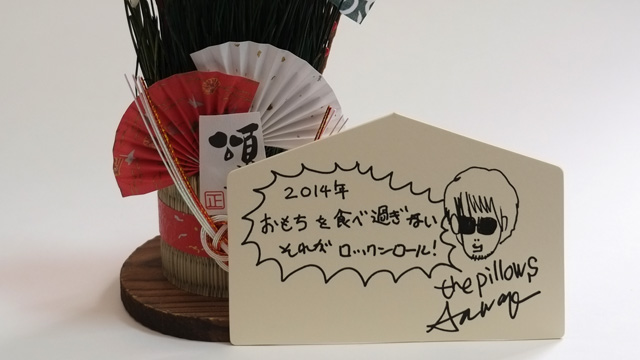 頌
正
2014年
おもちを食べ過ぎない
それがロックンロール!
the pillows